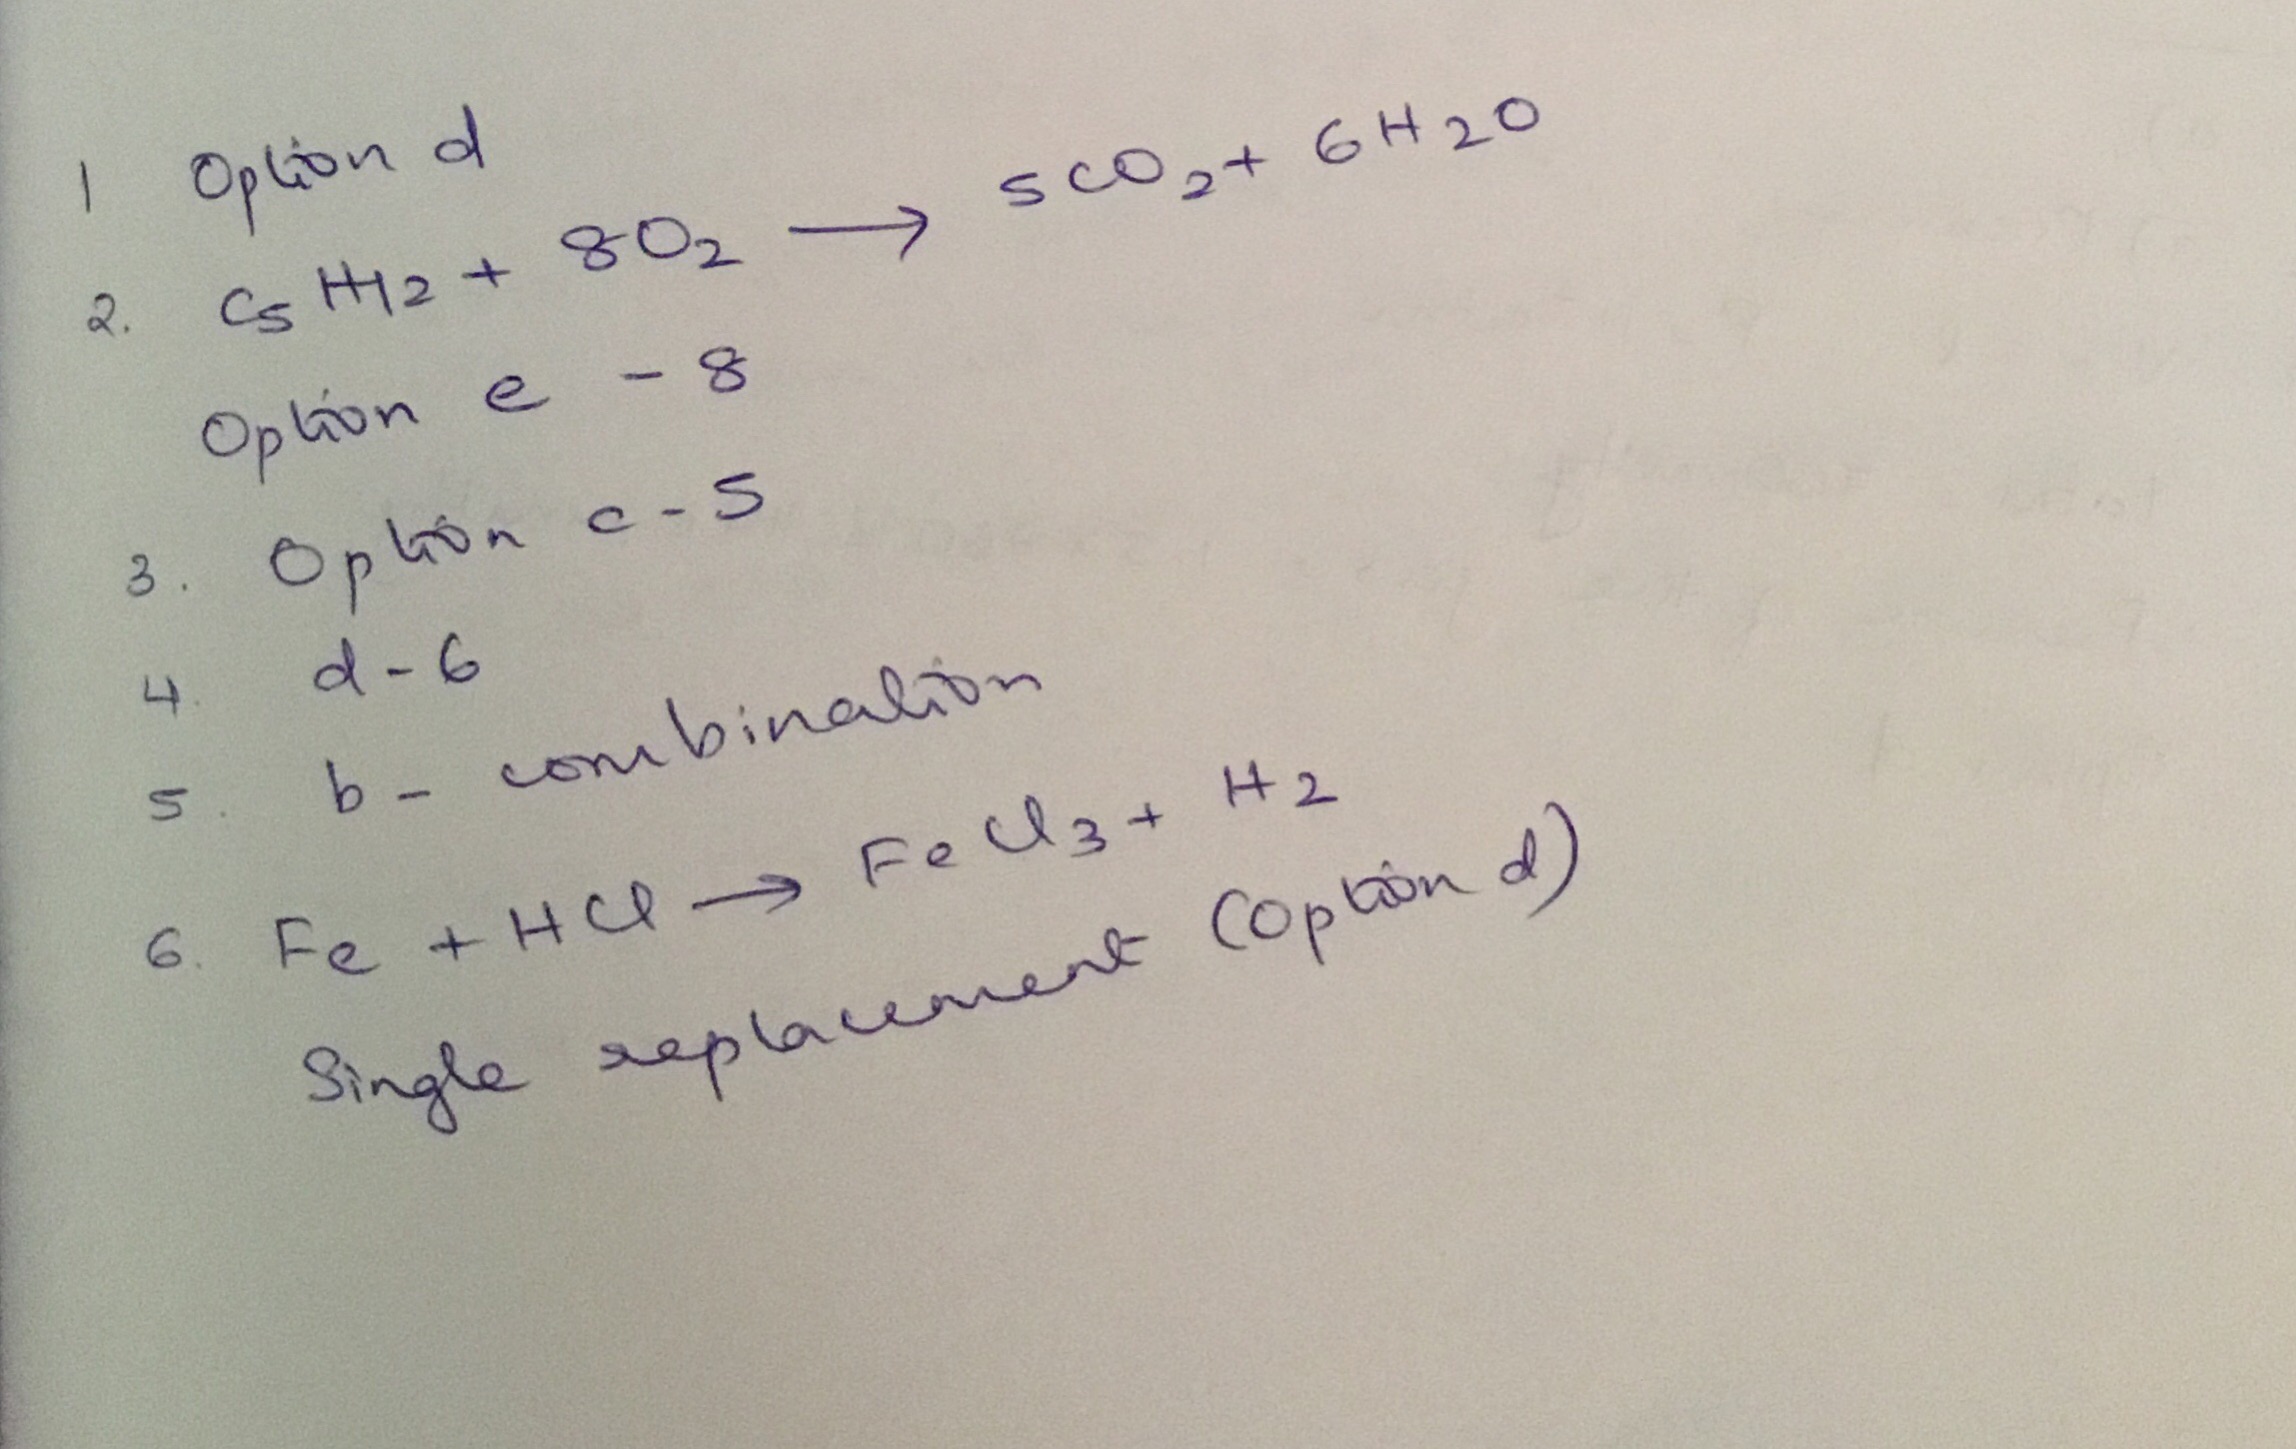 1 Option d
2. C5H12 + 8O2 → 5CO2 + 6H2O
Option e - 8
3. Option c - 5
4. d - 6
5. b - combination
6. Fe + HCl → FeCl3 + H2
Single replacement (Option d)